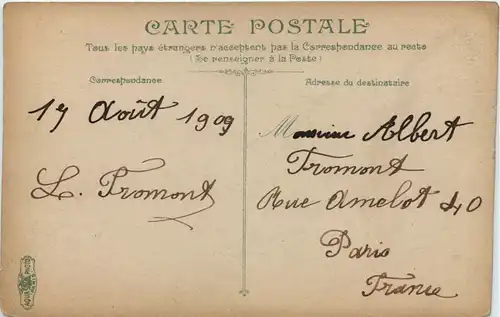 CARTE POSTALE
Tous les pays étrangers n'acceptent pas la Correspondance au recto
(Se renseigner à la Poste)
Correspondance
Adresse du destinataire
17 Août 1909
L. Fromont
Monsieur Albert
Fromont
Rue Amelot 40
Paris
France